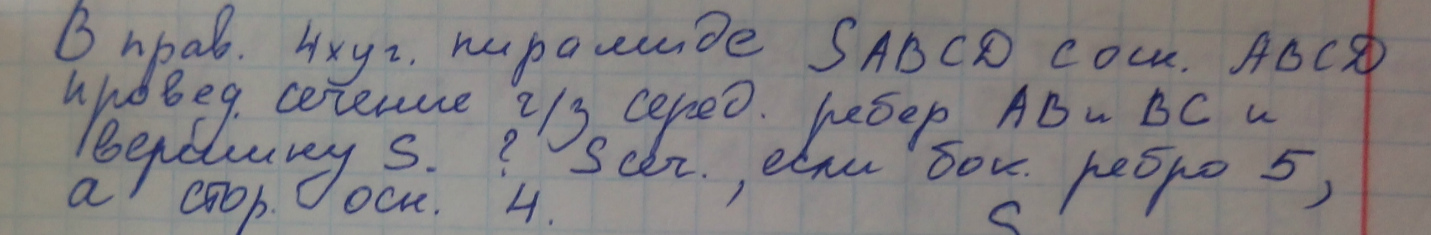 В прав. 4хуг. пирамиде SABCD с осн. ABCD
провед. сечение ч/з серед. ребер AB и BC и
вершину S. ? Sсеч., если бок. ребро 5,
а стор. осн. 4.
S